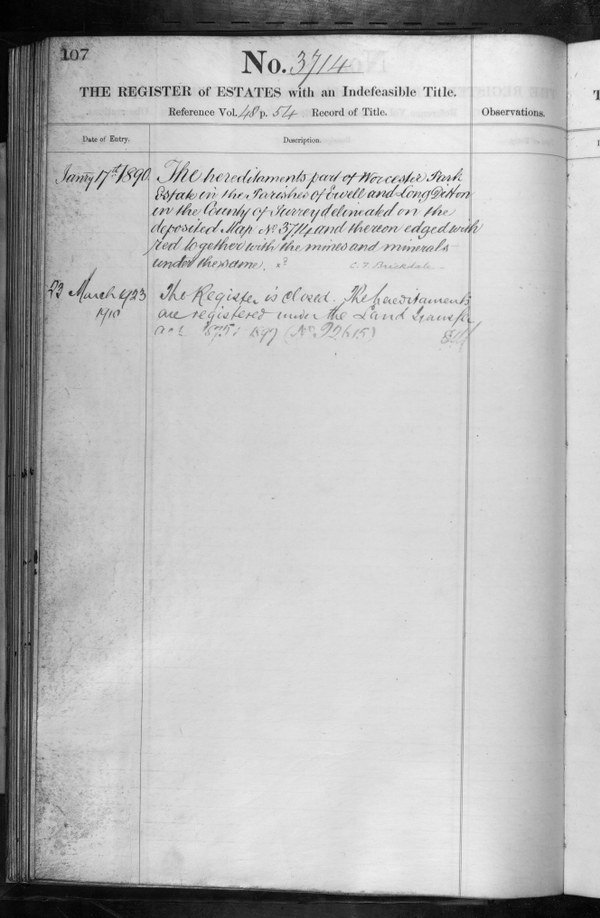 107
No. 3714
THE REGISTER of ESTATES with an Indefeasible Title.
Reference Vol. 48 p. 54 Record of Title.
Observations.
Date of Entry.
Description.
Jany 17th 1890.
The hereditaments part of Worcester Park
Estate in the Parishes of Ewell and Long Ditton
in the County of Surrey delineated on the
deposited Map No 3714 and thereon edged with
red together with the mines and minerals
under the same.
C. F. Brickdale
23 March
1910
The Register is closed. The hereditaments
are registered under the Land Transfer
act 1875 & 1897 (No 92615)